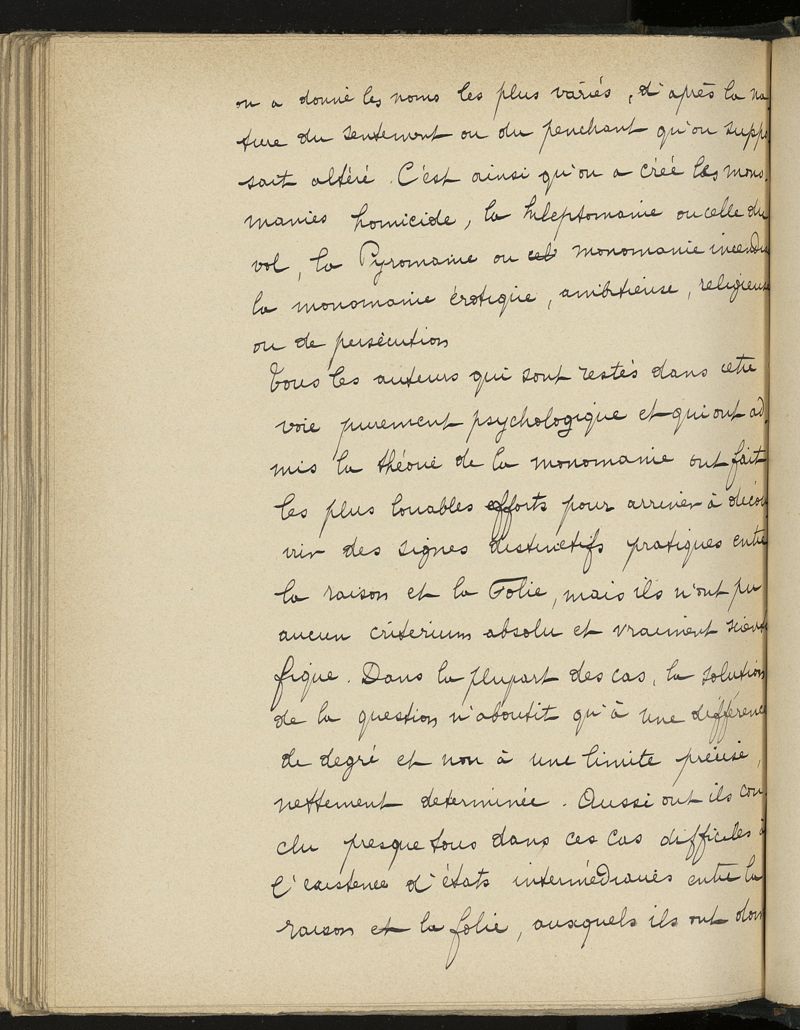 on a donné les noms les plus variés, d'après la na
ture du sentement ou du penchant qu'on suppo
sait altéré. C'est ainsi qu'on a créé les mono.
manies homicide, la kleptomanie ou celle du
vol, la Pyromanie ou monomanie incendia
la monomanie érotique, ambitieuse, religieuse
ou de persécution
Tous les auteurs qui sont restés dans cette
voie purement psychologique et qui ont ad.
mis la théorie de la monomanie ont fait
les plus louables efforts pour arriver à décou
vrir des signes distinctifs pratiques entre
la raison et la Folie, mais ils n'ont pu
aucun criterium absolu et vraiment scienti
fique. Dans la plupart des cas, la solution
de la question n'aboutit qu'à une différence
de degré et non à une limite précise,
nettement determinée. Aussi ont ils con
clu presque tous dans ces cas difficiles à
l'existence d'états intermédiaires entre la
raison et la folie, auxquels ils ont donn